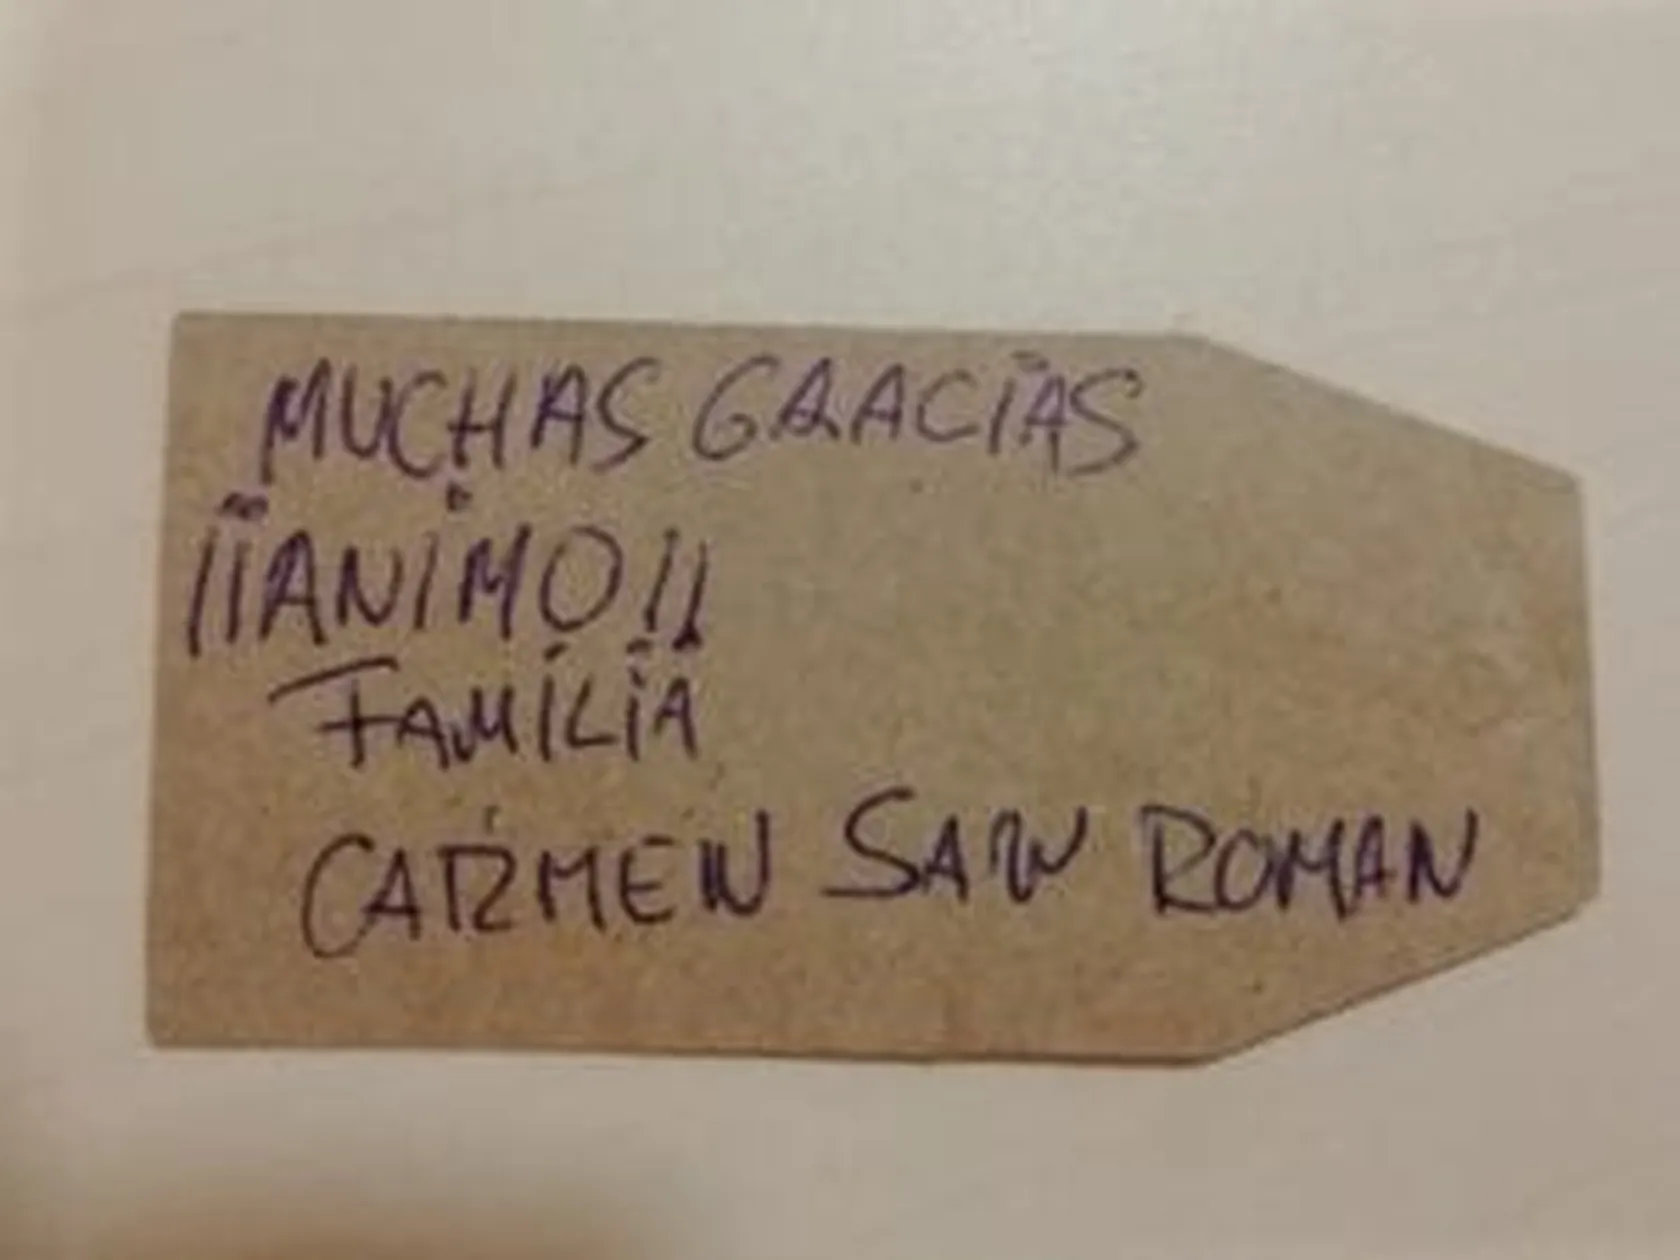 MUCHAS GRACIAS
¡¡ANIMO!!
FAMILIA
CARMEN SAN ROMAN